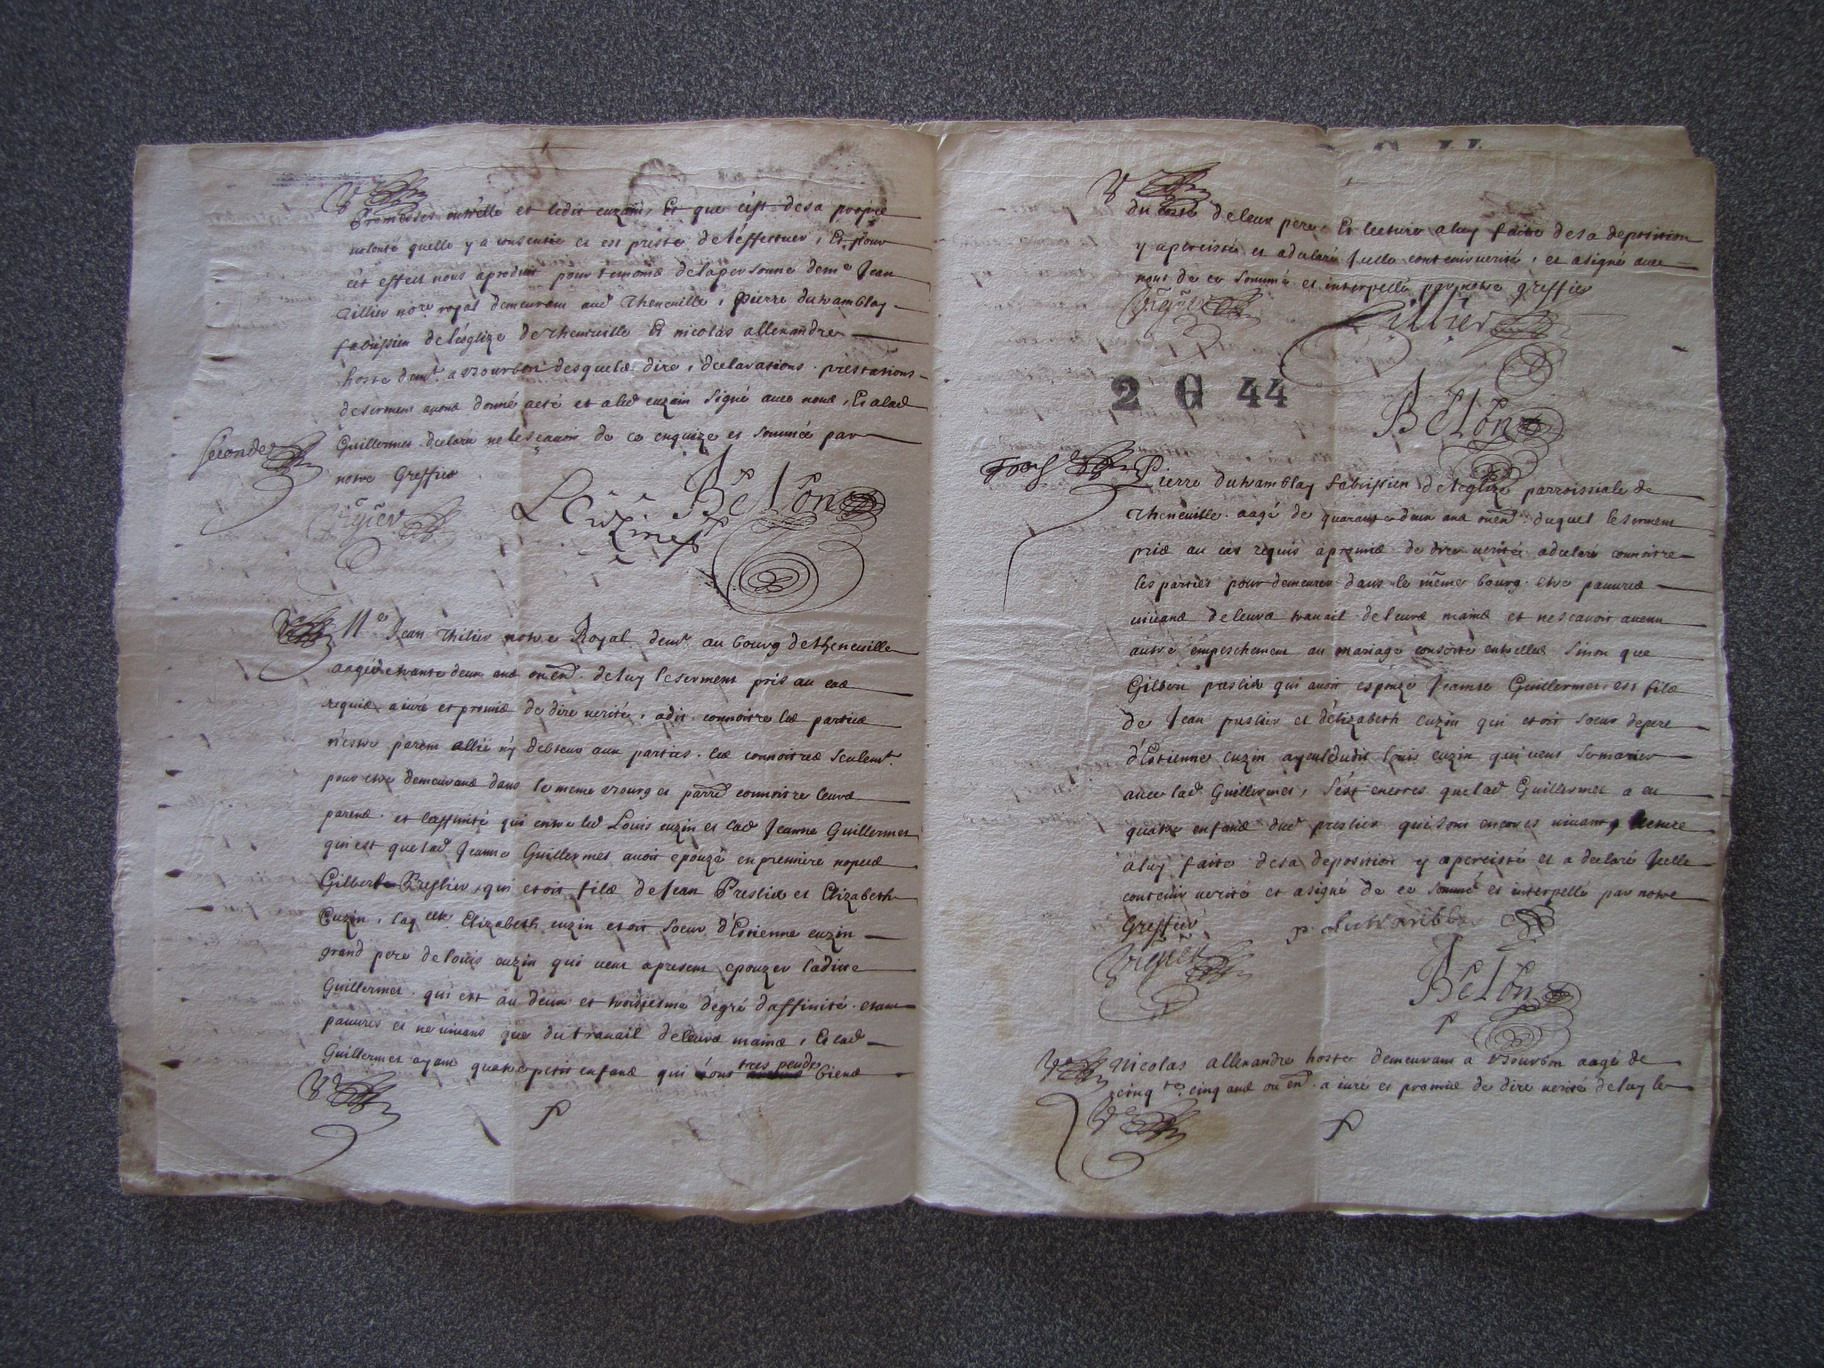 promesses entr'elle et ledit cuzain, Et que c'est de sa propre
volonté quelle y a consentie et est preste de l'effectuer, Et pour
cet effect nous a produit pour temoins de sa personne deme Jean
Tillier nore royal demeurant aud Theneuille, Pierre
fabrissien de l'esglize de Theneuille Et nicolas allexandre
hoste demt a Bourbon desquels dire, declarations prestations
de serment auons donné acte et a led cuzain signé auec nous, Et a lad
Guillermet declaré ne le scauoir de ce enquize et sommée par
notre Greffier
Seconde
Belon
Me Jean Thilier notre Royal demt au bourg de theneuille
aagé de deux ans ou end de luy le serment pris au cas
requis a iuré et promis de dire verité, a dit connoitre les parties
n'estre parent allié ny debteur aux parties les connoitres seulemt
pour estre demeurans dans le meme Bourg et parre connoitre leurs
parens et l'affinité qui entre led Louis cuzin et lad Jeanne Guillermet
qui est que lad Jeanne Guillermet auoit epouzé en premiere nopces
Gilbert Preslier, qui etoit fils de Jean Preslier et Elizabeth
Cuzin, laqlle Elizabeth cuzin etoit soeur d'Estienne cuzin
grand pere de louis cuzin qui veut apresent epouzer laditte
Guillermet qui est au deux et troisiesme degré d'affinité etant
pauures et ne viuans que du trauail de leurs mains, Et lad
Guillermet ayant quatre petits enfans qui n'ont tres peu de biens
du costé de leur pere Et lecture a luy faite de sa deposition
y a percisté et a declaré Icelle contenir verité, et a signé auec
nous de ce sommé et interpellé par notre greffier
Tillier
2 G 44
Belon
Pierre fabrissien de l'eglize parroissiale de
Theneuille aagé de quarante deux ans ou end duquel le serment
pris au cas requis a promis de dire verité a declaré connoitre
les parties pour demeurer dans le même bourg etre pauures
viuans de leurs trauail de leurs mains et ne scauoir aucun
autre empeschement au mariage entr'elles sinon que
Gilbert preslier qui auoit espouzé Jeanne Guillermet est fils
de Jean preslier et d'élizabeth cuzin qui etoit soeur de pere
d'Estienne cuzin ayeul dudit Louis cuzin qui veut se marier
auec lad Guillermet, s'est encores que lad Guillermet a eu
quatre enfans dud preslier qui sont encores viuans, lecture
a luy faite de sa deposition y a percisté et a declaré Icelle
contenir verité et a signé de ce sommé et interpellé par notre
Greffier
Belon
Nicolas allexandre hoste demeurant a Bourbon aagé de
cinqte cinq ans ou end a iuré et promis de dire verité de luy le